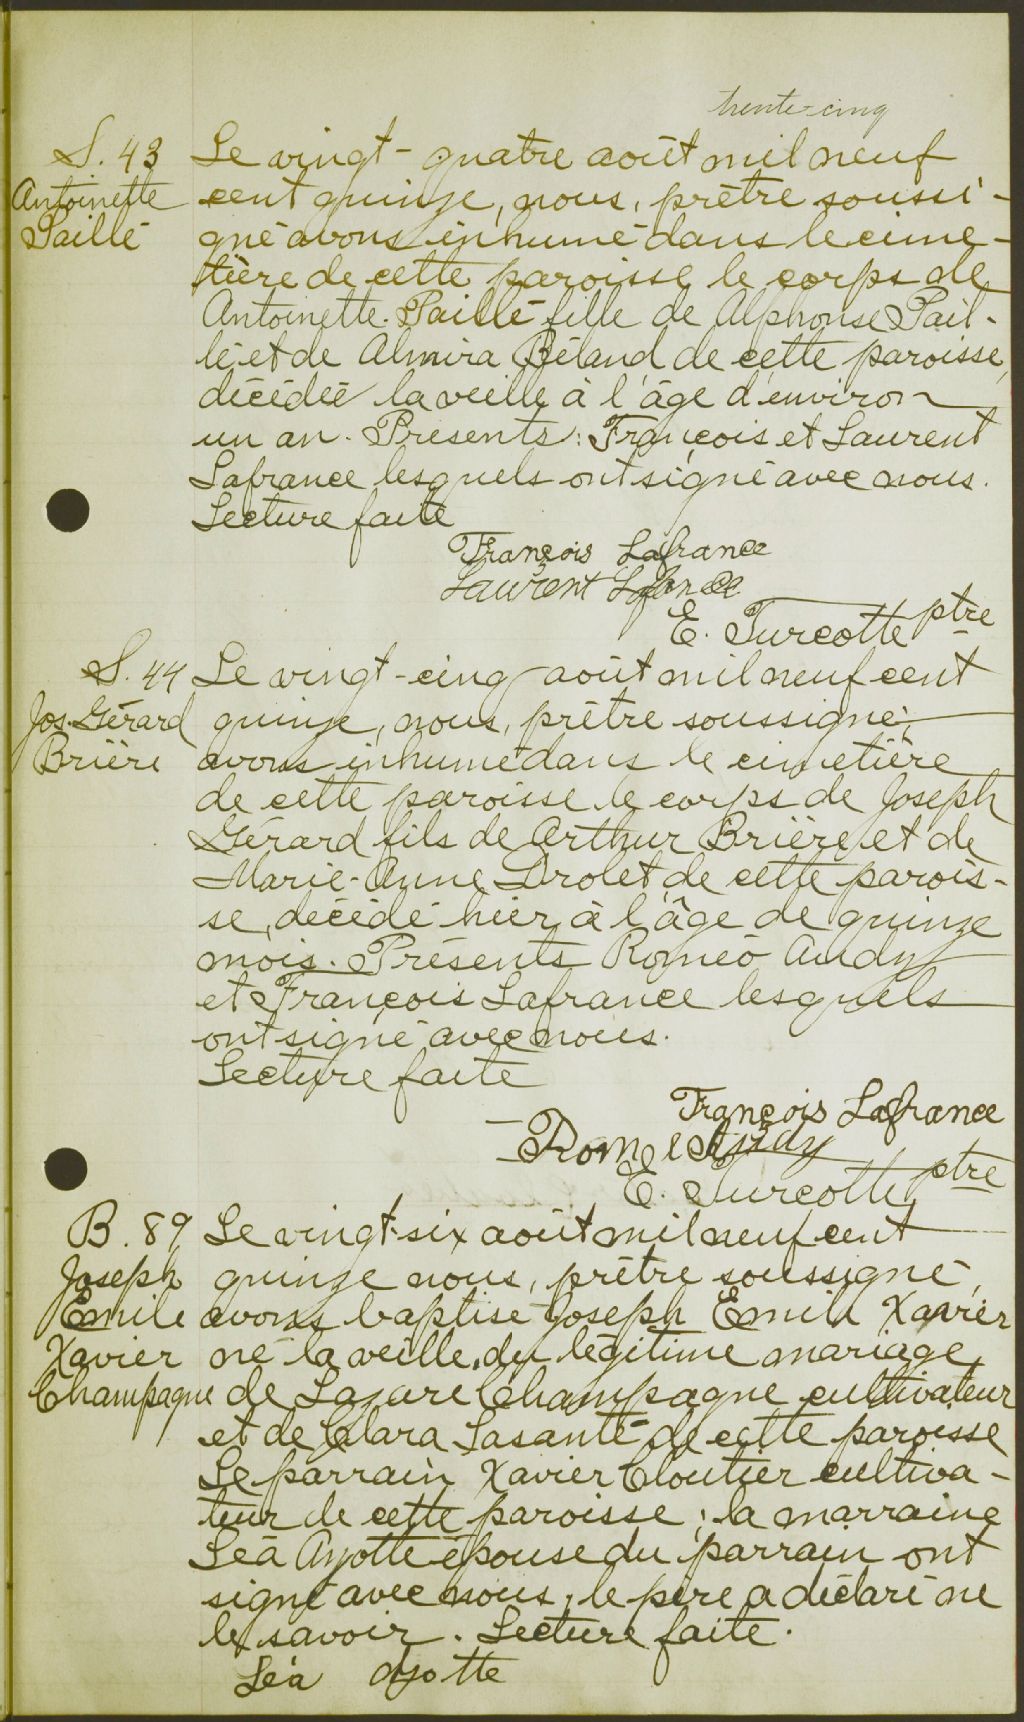 trente-cinq
S. 43
Antoinette
Paillé
Le vingt-quatre août mil neuf
cent quinze, nous, prêtre soussi-
gné avons inhumé dans le cime-
tière de cette paroisse le corps de
Antoinette Paillé fille de Alphonse Pail-
lé et de Almira Béland de cette paroisse,
décédée la veille à l'âge d'environ
un an. Présents: François et Laurent
Lafrance lesquels ont signé avec nous.
Lecture faite
François Lafrance
Laurent Lafrance
E. Turcotte ptre
S. 44
Jos. Gérard
Brière
Le vingt-cinq août mil neuf cent
quinze, nous, prêtre soussigné,
avons inhumé dans le cimetière
de cette paroisse le corps de Joseph
Gérard fils de Arthur Brière et de
Marie-Anne Drolet de cette parois-
se, décédé hier à l'âge de quinze
mois. Présents Roméo Audy
et François Lafrance lesquels
ont signé avec nous.
Lecture faite
François Lafrance
Romeo Audy
E. Turcotte ptre
B. 89
Joseph
Emile
Xavier
Champagne
Le vingt-six août mil neuf cent
quinze nous, prêtre soussigné,
avons baptisé Joseph Emile Xavier
né la veille, du légitime mariage
de Lazare Champagne cultivateur
et de Clara Lasanté de cette paroisse
Le parrain Xavier Cloutier cultiva-
teur de cette paroisse; la marraine
Léa Ayotte épouse du parrain ont
signé avec nous, le père a déclaré ne
le savoir. Lecture faite.
Léa Ayotte